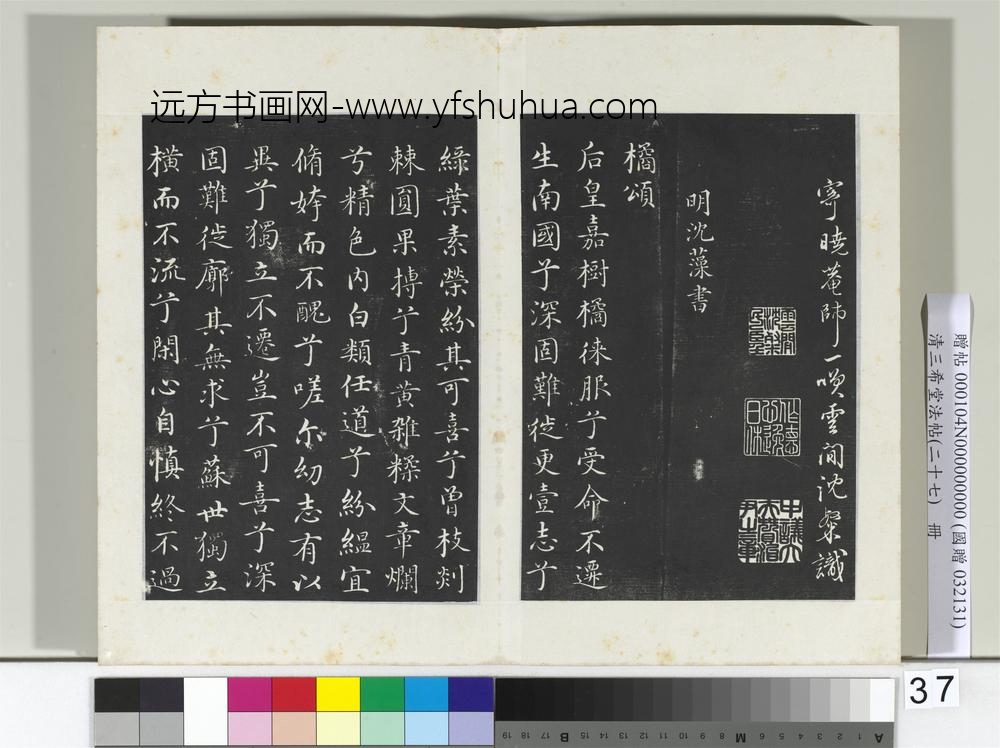 远方书画网-www.yfshuhua.com
寜曉菴師一嘆雲間沈粲識
明沈藻書
橘頌
后皇嘉樹橘徠服兮受命不遷
生南國兮深固難徙更壹志兮
綠葉素榮紛其可喜兮曾枝剡
棘圓果摶兮青黃雜糅文章爛
兮精色內白類任道兮紛緼宜
脩姱而不醜兮嗟爾幼志有以
異兮獨立不遷豈不可喜兮深
固難徙廓其無求兮蘇世獨立
橫而不流兮閉心自慎終不過
贈帖 000104N000000000 (國贈 032131)
清三希堂法帖(二十七) 冊
37
19 18 17 16 B 14 13 12 11 10 9 8 M 6 5 4 3 2 1 A